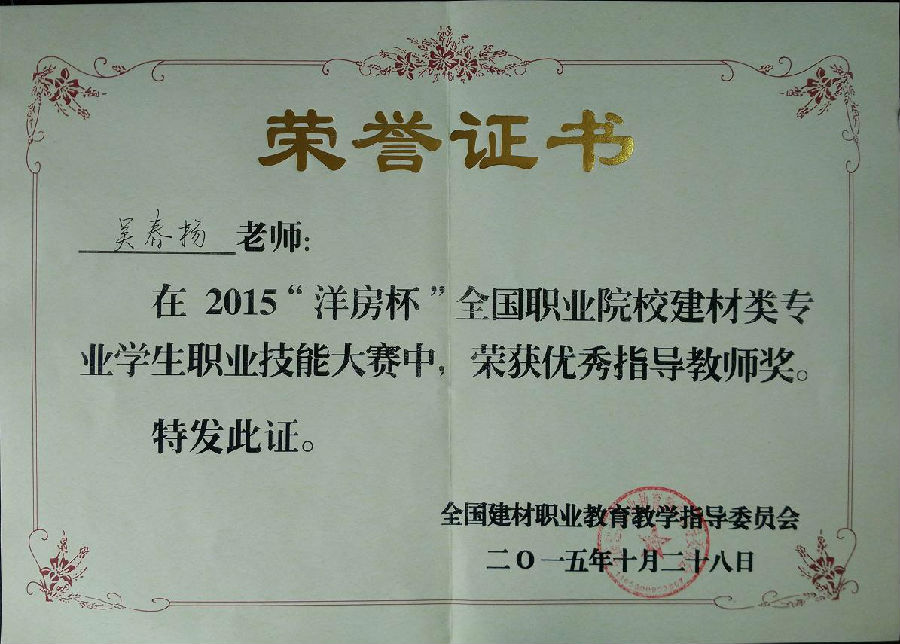 荣誉证书
吴春杨 老师:
在 2015“洋房杯”全国职业院校建材类专
业学生职业技能大赛中，荣获优秀指导教师奖。
特发此证。
全国建材职业教育教学指导委员会
二〇一五年十月二十八日